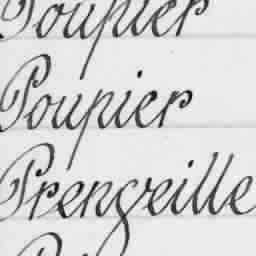 Poupier
Poupier
Prengveille